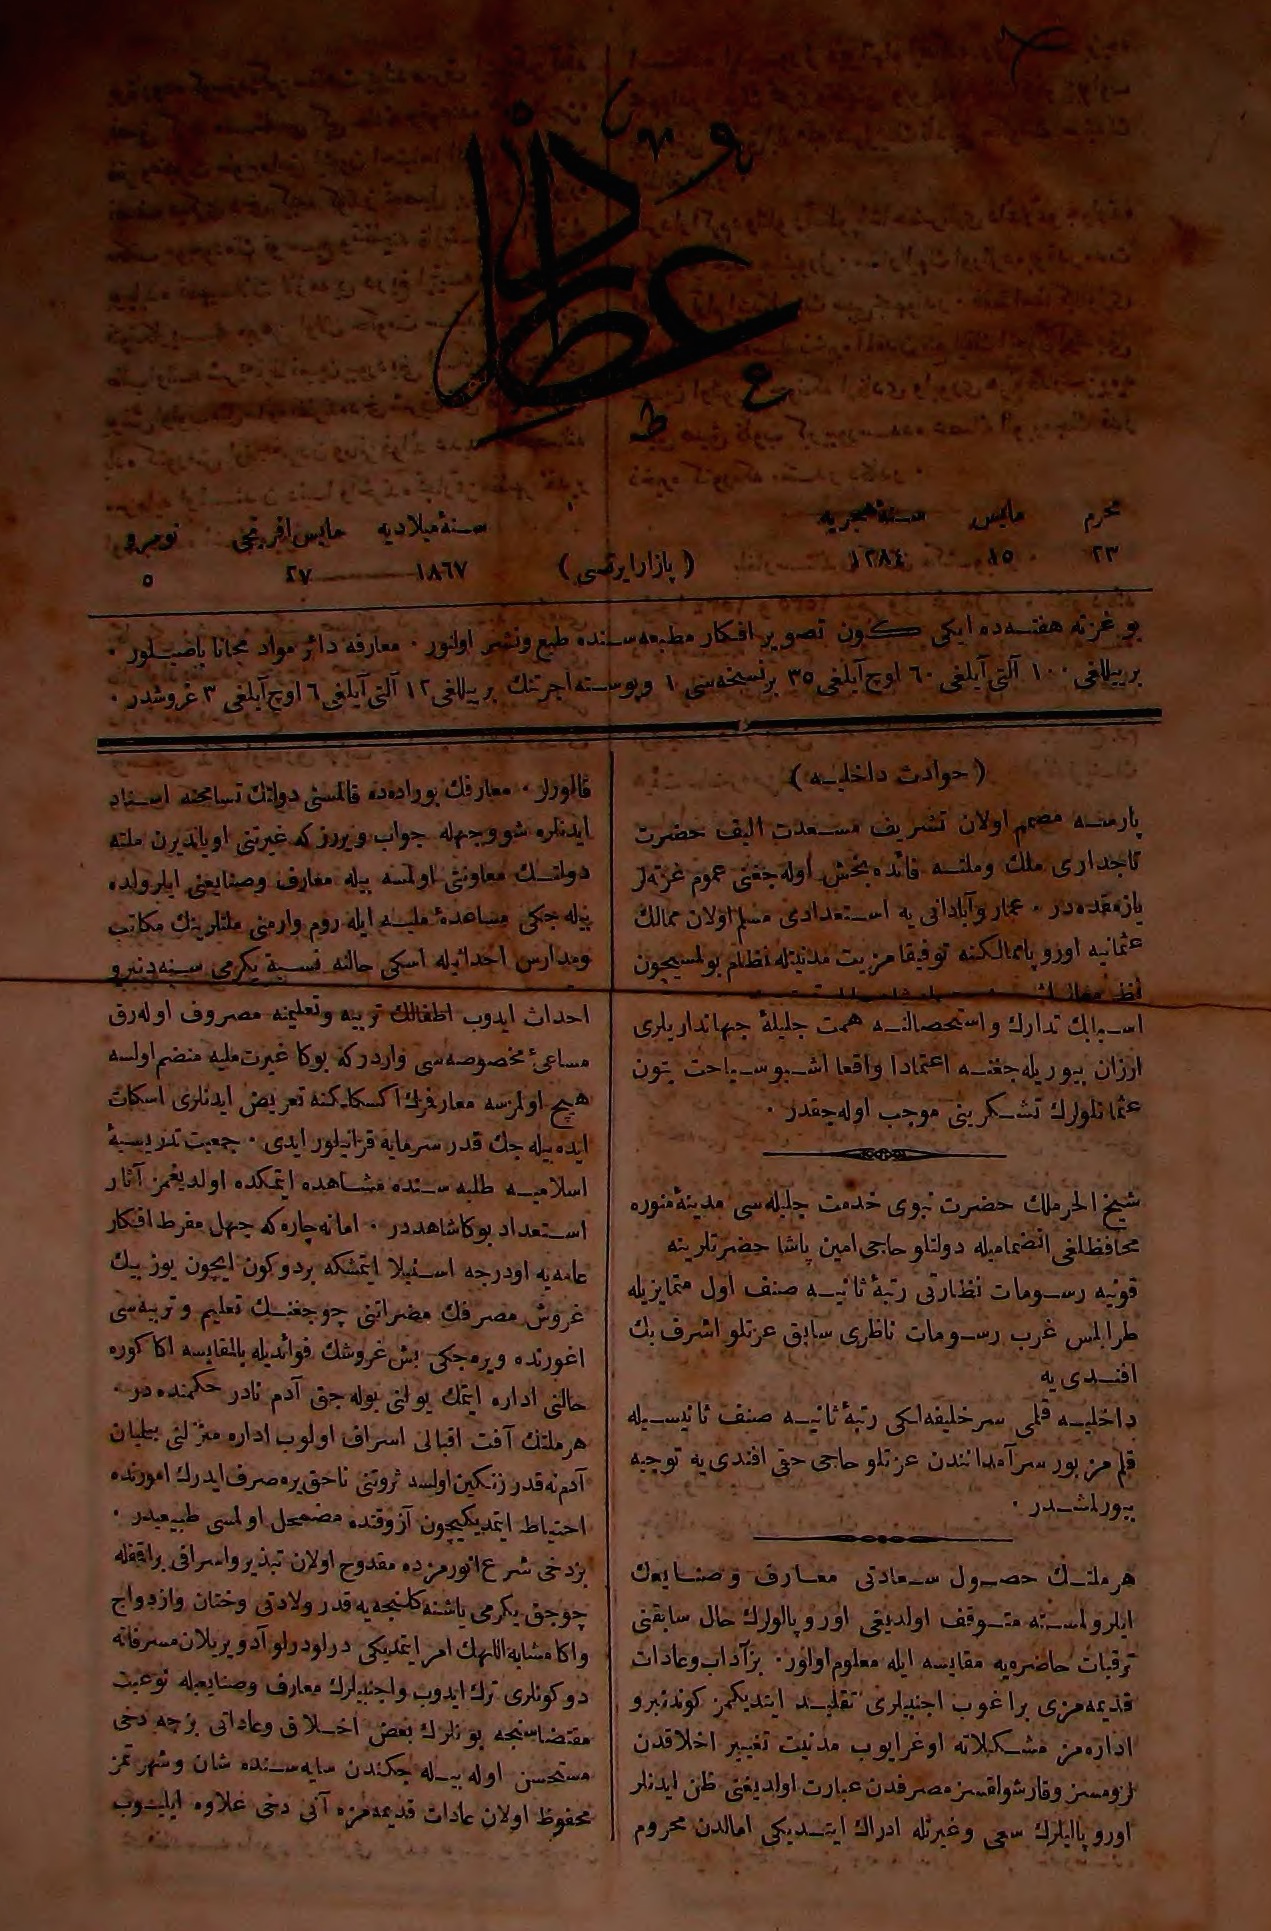 محرم مايس سنهٔ هجريه
٢٣ ١٥ ١٢٨٤
(پازار ايرتسى)
سنهٔ ميلاديه مايس افرنجى نومرو
١٨٦٧ ٢٧ ٥
بو غزته هفته‌ده ايكى كون تصوير افكار مطبعه‌سنده طبع ونشر اولنور ٠ معارفه دائر مواد مجانا باصيلور ٠
بر ييللغى ١٠٠ آلتى آيلغى ٦٠ اوچ آيلغى ٣٥ بر نسخه‌سى ١ وپوسته اجرتنك بر ييللغى ١٢ آلتى آيلغى ٦ اوچ آيلغى ٣ غروشدر ٠
(حوادث داخليه)
پارسه مصمم اولان تشريف مسعدت اليف حضرت
تاجدارى ملك وملته فائده بخش اوله‌جغنى عموم غزته‌لر
يازمقده‌در ٠ عمار وآبادانى يه استعدادى مسلم اولان ممالك
عثمانيه اوروپا ممالكنه توفيقا مزيت مدنيتله نظام بولمسيچون
اسبابك تدارك واستحصالنه همت جليلهٔ جهانداريلرى
ارزان بيوريله‌جغنه اعتمادا واقعا اشبو سياحت بتون
عثمانلولرك تشكرينى موجب اوله‌جقدر ٠
شيخ الحرملك حضرت نبوى خدمت جليله‌سى مدينهٔ منوره
محافظلغى انضماميله دولتلو حاجى امين پاشا حضرتلرينه
قونيه رسومات نظارتى رتبهٔ ثانيه صنف اول متمايزيله
طرابلس غرب رسومات ناظرى سابق عزتلو اشرف بك
افندى يه
داخليه قلمى سر خليفه‌لكى رتبهٔ ثانيه صنف ثانيسيله
قلم مزبور سرآمدانندن عزتلو حاجى حقى افندى يه توجيه
بيورلمشدر ٠
هر ملتك حصول سعادتى معارف وصنايعك
ايلرولمسنه متوقف اولديغى اوروپالولرك حال سابقنى
ترقيات حاضره‌يه مقايسه ايله معلوم اولور ٠ بز آداب وعادات
قديمه‌مزى براغوب اجنبيلرى تقليد ايتديكمز كوندنبرو
اداره‌مز مشكلاته اوغرايوب مدنيت تغيير اخلاقدن
لزومسز وقارشولقسز مصرفدن عبارت اولديغنى ظن ايدنلر
اوروپاليلرك سعى وغيرتله ادراك ايتديكى امالدن محروم
قالورلر ٠ معارفك بوراده‌ده قالمسنى دولتك تسامحنه اسناد
ايدنلره شو وجهله جواب ويررز كه غيرتنى اوياندیرن ملته
دولتك معاونتى اولمسه بيله معارف وصنايعنى ايلرولده
بيله‌جكى مساعدهٔ مليه ايله روم وارمنى ملتلرينك مكاتب
ومدارس احداثيله اسكى حالنه نسبة يكرمى سنه‌دنبرو
احداث ايدوب اطفالك تربيه وتعليمنه مصروف اوله‌رق
مساعئ مخصوصه‌سى واردر كه بوكا غيرت مليه منضم اولسه
هيچ اولمزسه معارفزك اكسكلكنه تعريض ايدنلرى اسكات
ايده بيله‌جك قدر سرمايه قزانيلور ايدى ٠ جمعيت تدريسيهٔ
اسلاميه طلبه‌سنده مشاهده ايتمكده اولديغمز آثار
استعداد بوكا شاهددر ٠ اما نه چاره كه جهل مفرط افكار
عامه‌يه اودرجه استيلا ايتمشكه بر دوكون ايچون يوز بيك
غروش مصرفك مضراتنى چوجغنك تعليم وتربيه‌سى
اغورنده ويره‌جكى بش غروشك فوائديله بالمقايسه اكا كوره
حالنى اداره ايتمك يولنى بوله‌جق آدم نادر حكمنده‌در ٠
هر ملتك آفت اقبالى اسراف اولوب اداره منزلنى بيلميان
آدم نه قدر زنكين اولسه ثروتنى ناحق يره صرف ايدرك امورنده
احتياط ايتمديكيچون آز وقتده مضمحل اولمسى طبيعيدر ٠
بزدخى شرع انورمزده مقدوح اولان تبذير واسرافى براقمغله
چوجق يكرمى ياشنه كلنجه‌يه قدر ولادتى وختان وازدواج
واكا مشابه اللهك امر ايتمديكى درلو درلو آد ويريلان مسرفانه
دوكونلرى ترك ايدوب واجنبيلرك معارف وصنايعيله نوعيت
مقتضاسنجه بونلرك بعض اخلاق وعاداتى بزجه دخى
مستحسن اوله بيله‌جكندن سايه‌سنده شان وشهرتمز
محفوظ اولان عادات قديمه‌مزه آنى دخى علاوه ايليوب